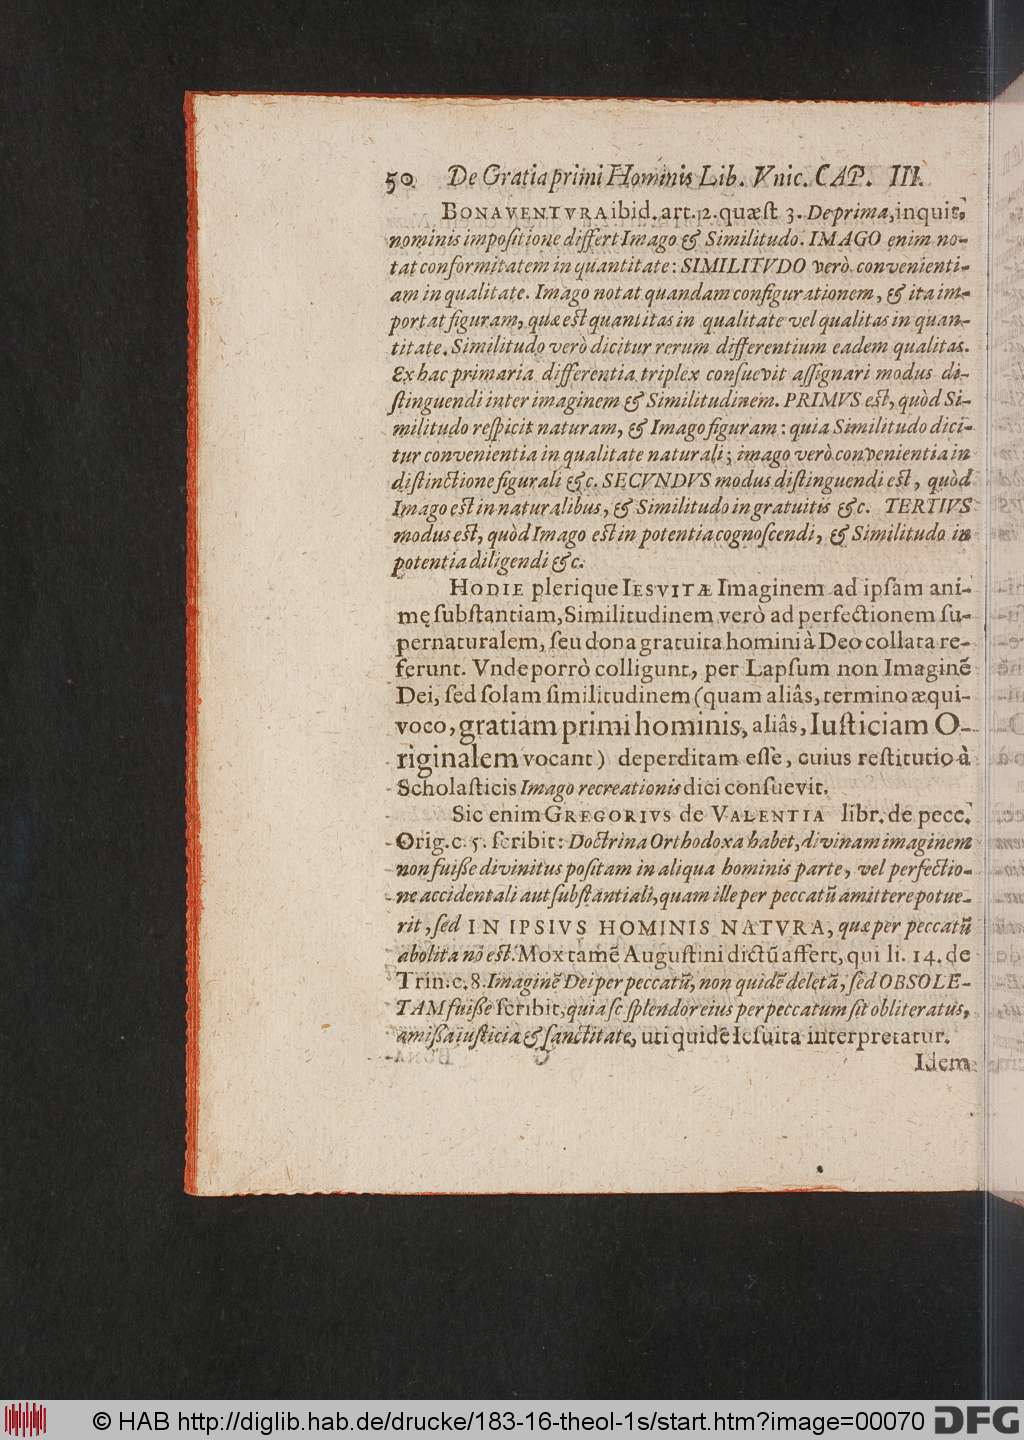 50 De Gratia primi Hominis Lib. Vnic. CAP. III.
BONAVENTVRA ibid. art. 2. quæst 3. De prima, inquit,
nominis impositione differt Imago & Similitudo. IMAGO enim no-
tat conformitatem in quantitate: SIMILITVDO verò convenienti-
am in qualitate. Imago notat quandam configurationem, & ita im-
portat figuram, quæ est quantitas in qualitate vel qualitas in quan-
titate. Similitudo verò dicitur rerum differentium eadem qualitas.
Ex hac primaria differentia triplex consuevit assignari modus di-
stinguendi inter imaginem & Similitudinem. PRIMVS est, quòd Si-
militudo respicit naturam, & Imago figuram: quia Similitudo dici-
tur convenientia in qualitate naturali; imago verò convenientia in
distinctione figurali &c. SECVNDVS modus distinguendi est, quòd
Imago est in naturalibus, & Similitudo in gratuitis &c. TERTIVS
modus est, quòd Imago est in potentia cognoscendi, & Similitudo in
potentia diligendi &c.
HODIE plerique IESVITÆ Imaginem ad ipsam ani-
mę substantiam, Similitudinem verò ad perfectionem su-
pernaturalem, seu dona gratuita homini à Deo collata re-
ferunt. Vnde porrò colligunt, per Lapsum non Imaginẽ
Dei, sed solam similitudinem (quam aliâs, termino æqui-
voco, gratiam primi hominis, aliâs, Iusticiam O-
riginalem vocant) deperditam esse, cuius restitutio à
Scholasticis Imago recreationis dici consuevit.
Sic enim GREGORIVS de VALENTIA libr. de pecc.
Orig. c. 5. scribit: Doctrina Orthodoxa habet, divinam imaginem
non fuisse divinitus positam in aliqua hominis parte, vel perfectio-
ne accidentali aut substantiali, quam ille per peccatũ amittere potue-
rit, sed IN IPSIVS HOMINIS NATVRA, quæ per peccatũ
abolita nõ est. Mox tamẽ Augustini dictũ affert, qui li. 14. de
Trin. c. 8. Imaginẽ Dei per peccatũ, non quidẽ deletã, sed OBSOLE-
TAM fuisse scribit, quia sc splendor eius per peccatum sit obliteratus,
amissa iusticia & sanctitate, uti quidẽ Iesuita interpretatur.
Idem
© HAB http://diglib.hab.de/drucke/183-16-theol-1s/start.htm?image=00070 DFG